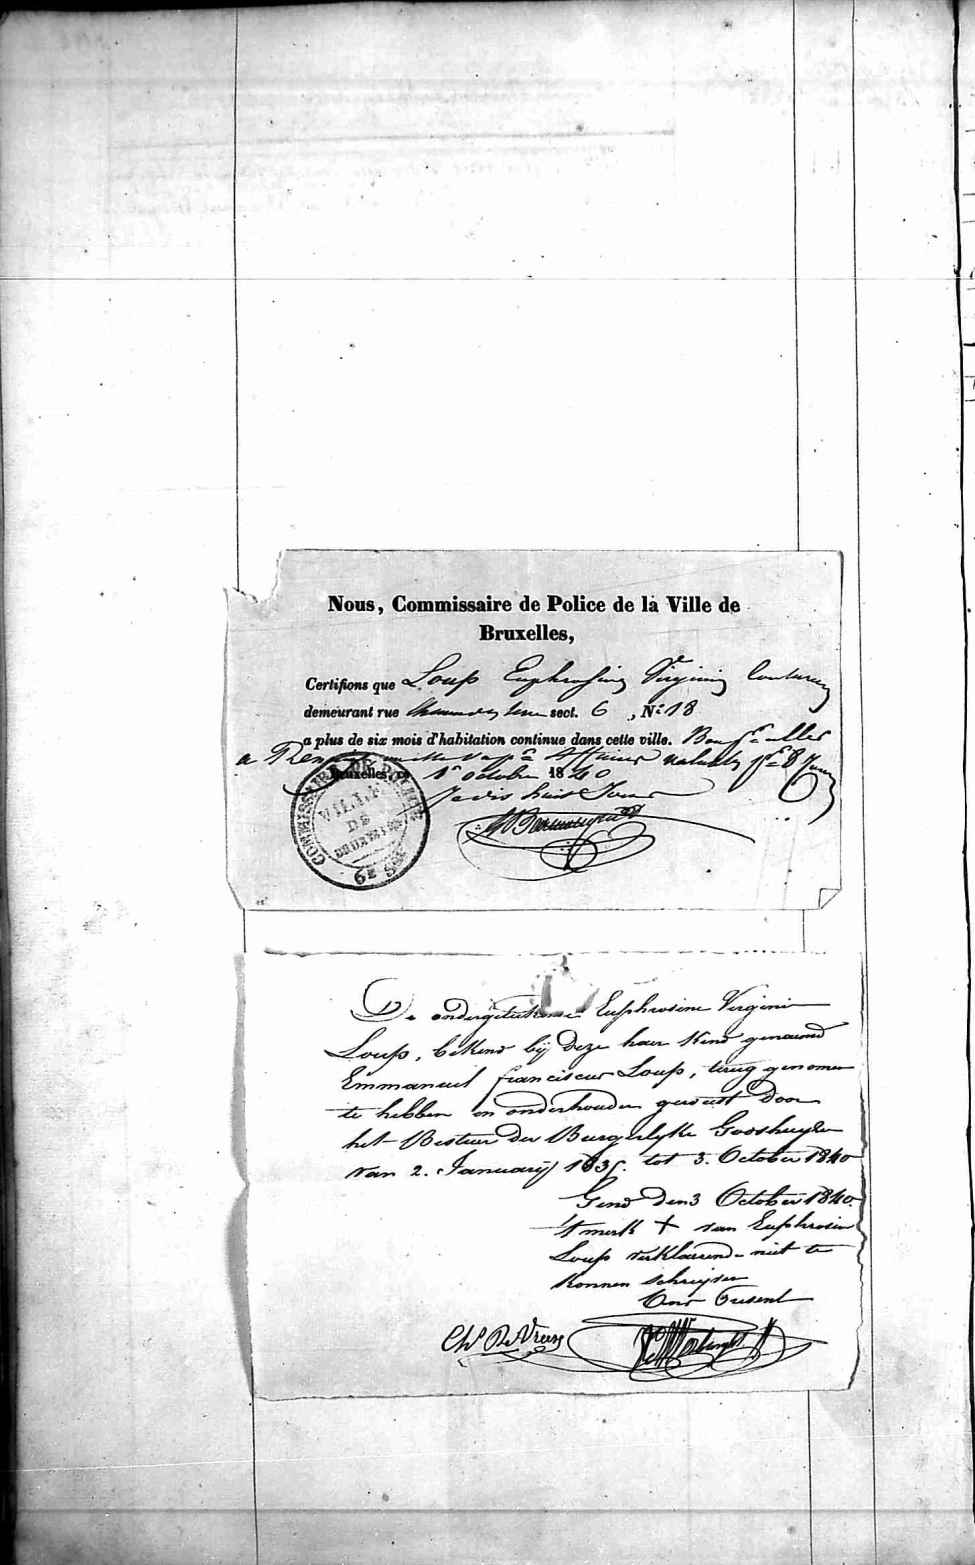 Nous, Commissaire de Police de la Ville de
Bruxelles,
Certifions que Loup Euphrosine Virginie Couturière
demeurant rue sect. 6, N° 18
a plus de six mois d'habitation continue dans cette ville. Bon pr aller
a valable pr 8 Jours
Bruxelles, ce 1r octobre 1840
Je dis huit Jours
COMMISSAIRE DE POLICE
VILLE
DE
BRUXELLES
6E Son
De ondergetekende Euphrosine Virginie
Loup, bekend bij deze haer Kind genaemd
Emmanuel franciscus Loup, terug genomen
te hebben en onderhouden geweest door
het Bestuer der Burgerlyke Godshuyzen
van 2. Januarij 1835. tot 3. October 1840
Gend den 3 October 1840.
't merk + van Euphrosine
Loup verklarend niet te
konnen schrijven
Ons Present
Chs De Vreese